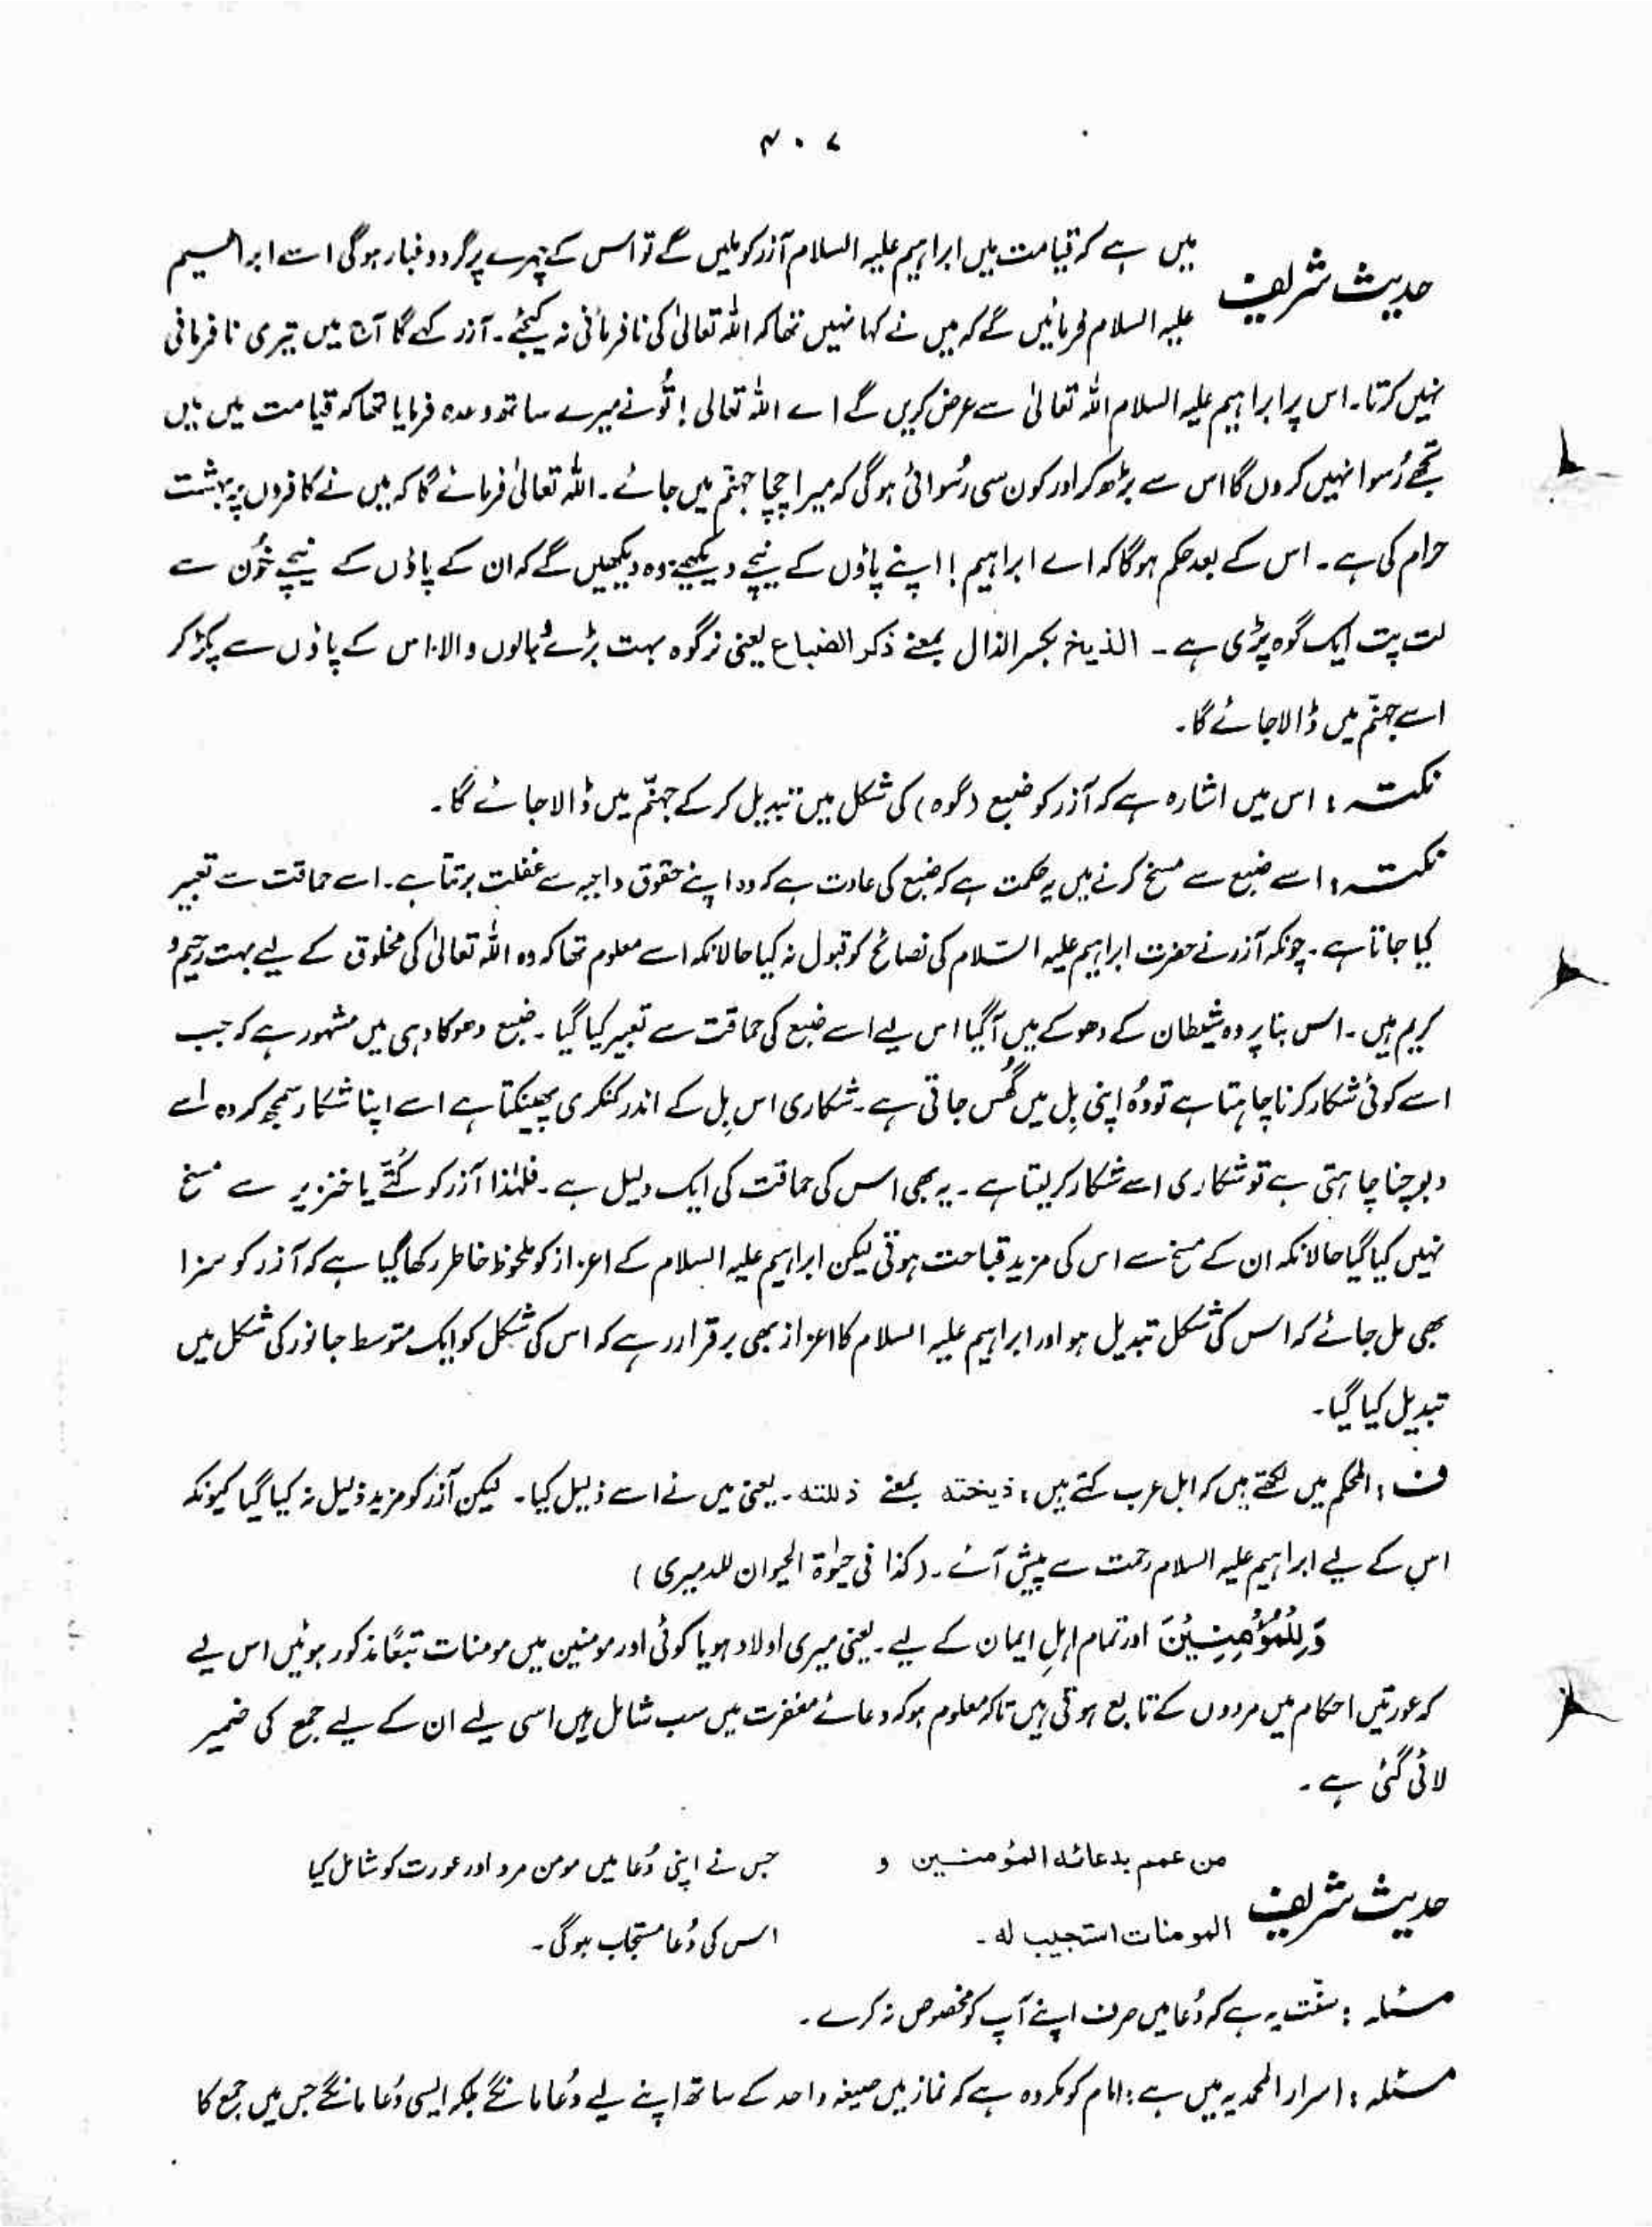 ۴۰۷
حدیث شریف میں ہے کہ قیامت میں ابراہیم علیہ السلام آزر کو ملیں گے تو اس کے چہرے پر گرد و غبار ہوگی اسے ابراہیم
علیہ السلام فرمائیں گے کہ میں نے کہا نہیں تھا کہ اللہ تعالیٰ کی نافرمانی نہ کیجئے۔ آزر کہے گا آج میں تیری نافرمانی
نہیں کرتا۔ اس پر ابراہیم علیہ السلام اللہ تعالیٰ سے عرض کریں گے اے اللہ تعالیٰ! تُو نے میرے ساتھ وعدہ فرمایا تھا کہ قیامت میں میں
تجھے رُسوا نہیں کروں گا اس سے بڑھ کر اور کون سی رُسوائی ہوگی کہ میرا چچا جہنّم میں جائے۔ اللہ تعالیٰ فرمائے گا کہ میں نے کافروں پر بہشت
حرام کی ہے۔ اس کے بعد حکم ہوگا کہ اے ابراہیم! اپنے پاؤں کے نیچے دیکھیے: وہ دیکھیں گے کہ ان کے پاؤں کے نیچے خُون سے
لت پت ایک گوہ پڑی ہے۔ الذیخ بکسر الذال بمعنے ذکر الضباع یعنی نر گوہ بہت بڑے بالوں والا۔ اس کے پاؤں سے پکڑ کر
اسے جہنّم میں ڈالا جائے گا۔
نکتہ: اس میں اشارہ ہے کہ آزر کو ضبع (گوہ) کی شکل میں تبدیل کر کے جہنّم میں ڈالا جائے گا۔
نکتہ: اسے ضبع سے مسخ کرنے میں یہ حکمت ہے کہ ضبع کی عادت ہے کہ وہ اپنے حقوق واجبہ سے غفلت برتتا ہے۔ اسے حماقت سے تعبیر
کیا جاتا ہے۔ چونکہ آزر نے حضرت ابراہیم علیہ السّلام کی نصائح کو قبول نہ کیا حالانکہ اسے معلوم تھا کہ وہ اللہ تعالیٰ کی مخلوق کے لیے بہت رحیم و
کریم ہیں۔ اس بنا پر وہ شیطان کے دھوکے میں آگیا اس لیے اسے ضبع کی حماقت سے تعبیر کیا گیا۔ ضبع دھوکا دہی میں مشہور ہے کہ جب
اسے کوئی شکار کرنا چاہتا ہے تو وُہ اپنی بِل میں گھُس جاتی ہے۔ شکاری اس بِل کے اندر کنکری پھینکتا ہے اسے اپنا شکار سمجھ کر وہ اسے
دبوچنا چاہتی ہے تو شکاری اسے شکار کر لیتا ہے۔ یہ بھی اس کی حماقت کی ایک دلیل ہے۔ فلہٰذا آزر کو کُتّے یا خنزیر سے مسخ
نہیں کیا گیا حالانکہ ان کے مسخ سے اس کی مزید قباحت ہوتی لیکن ابراہیم علیہ السلام کے اعزاز کو ملحوظ خاطر رکھا گیا ہے کہ آزر کو سزا
بھی مل جائے کہ اس کی شکل تبدیل ہو اور ابراہیم علیہ السلام کا اعزاز بھی برقرار رہے کہ اس کی شکل کو ایک متوسط جانور کی شکل میں
تبدیل کیا گیا۔
ف: المحکم میں لکھتے ہیں کہ اہل عرب کہتے ہیں: ذیخته بمعنے ذللته۔ یعنی میں نے اسے ذلیل کیا۔ لیکن آزر کو مزید ذلیل نہ کیا گیا کیونکہ
اس کے لیے ابراہیم علیہ السلام رحمت سے پیش آئے۔ (کذا فی حیٰوۃ الحیوان للدمیری)
وَلِلْمُؤْمِنِیْنَ اور تمام اہلِ ایمان کے لیے۔ یعنی میری اولاد ہو یا کوئی اور مومنین میں مومنات تبعًا مذکور ہوئیں اس لیے
کہ عورتیں احکام میں مردوں کے تابع ہوتی ہیں تاکہ معلوم ہو کہ دعائے مغفرت میں سب شامل ہیں اسی لیے ان کے لیے جمع کی ضمیر
لائی گئی ہے۔
حدیث شریف من عمم بدعائه المؤمنین و جس نے اپنی دُعا میں مومن مرد اور عورت کو شامل کیا
المومنات استجیب له۔ اس کی دُعا مستجاب ہوگی۔
مسئلہ: سنّت یہ ہے کہ دُعا میں صرف اپنے آپ کو مخصوص نہ کرے۔
مسئلہ: اسرار المحمدیہ میں ہے: امام کو مکروہ ہے کہ نماز میں صیغہ واحد کے ساتھ اپنے لیے دُعا مانگے بلکہ ایسی دُعا مانگے جس میں جمع کا